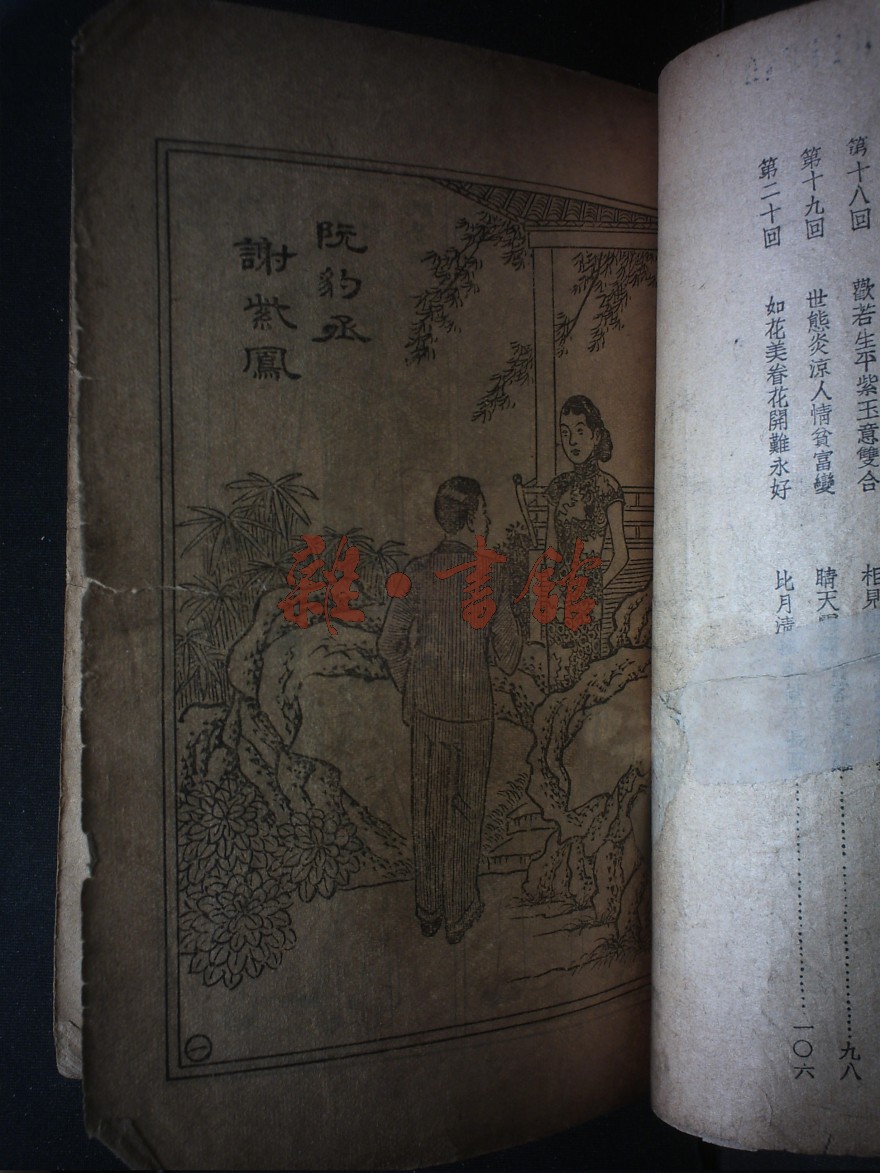 第十八回 歡若生平紫玉意雙合 相見
九八
第十九回 世態炎涼人情貧富變 晴天
一〇六
第二十回 如花美眷花開難永好 比月
阮豹丞
謝紫鳳
一
雜·書館